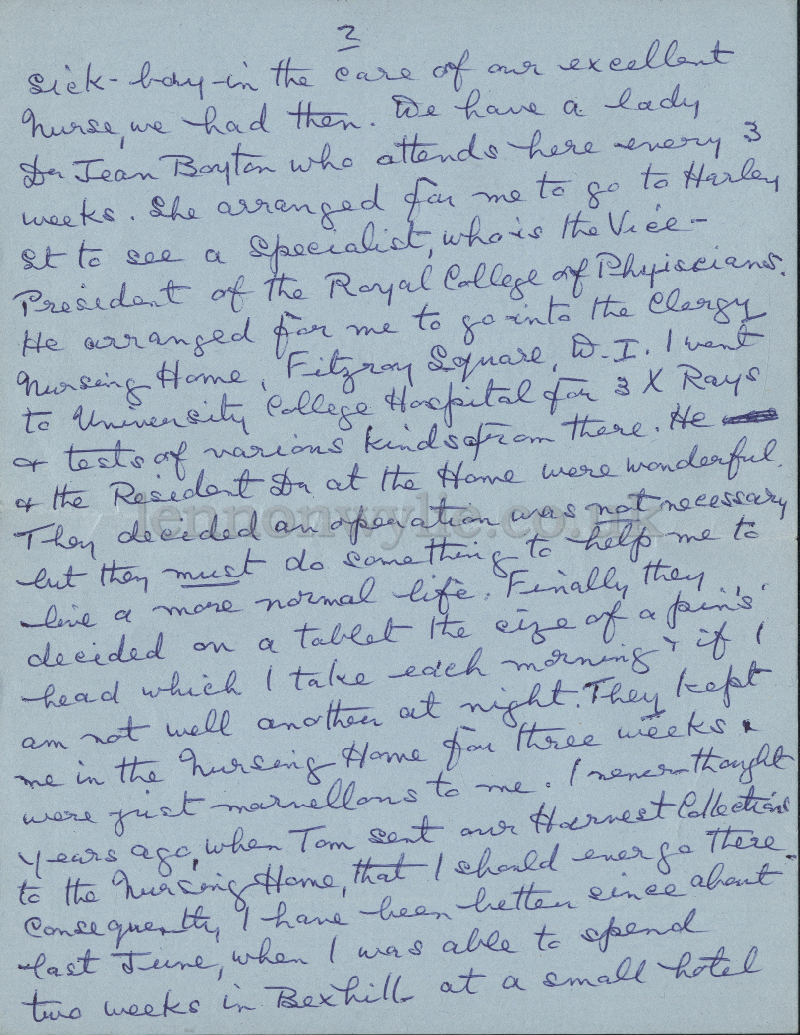 2
sick-bay in the care of our excellent
Nurse, we had then. We have a lady
Dr Jean Boyton who attends here every 3
weeks. She arranged for me to go to Harley
St to see a Specialist, who is the Vice-
President of the Royal College of Phyiscians.
He arranged for me to go into the Clergy
Nursing Home, Fitzroy Square, W.I. I went
to University College Hospital for 3 X Rays
& tests of various kinds from there. He
& the Resident Dr at the Home were wonderful.
They decided an operation was not necessary
but they must do something to help me to
live a more normal life. Finally they
decided on a tablet the size of a pin's
head which I take each morning & if I
am not well another at night. They kept
me in the Nursing Home for three weeks &
were just marvellous to me. I never thought
years ago, when Tom sent our Harvest Collections
to the Nursing Home, that I should ever go there.
Consequently I have been better since about
last June, when I was able to spend
two weeks in Bexhill at a small hotel
lennonwylie.co.uk